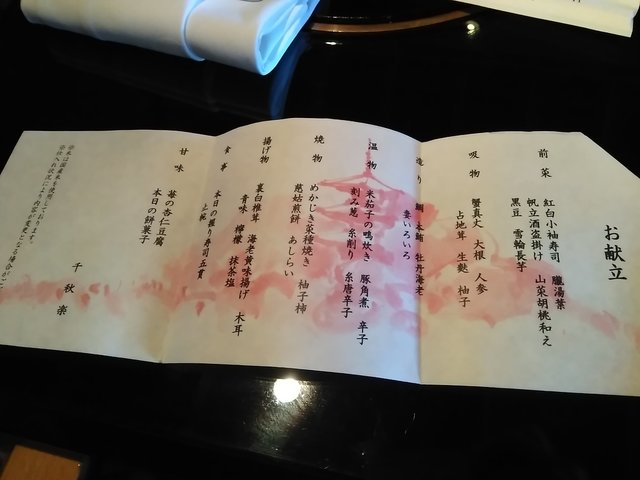 お献立
前菜
紅白小袖寿司 朧湯葉
帆立酒盗掛け 山菜胡桃和え
黒豆 雪輪長芋
吸物
蟹真丈 大根 人参
占地茸 生麩 柚子
造り
鯛 本鮪 牡丹海老
妻いろいろ
温物
米茄子の鴫炊き 豚角煮 辛子
刻み葱 糸削り 糸唐辛子
焼物
めかじき菜種焼き 柚子柿
慈姑煎餅 あしらい
揚げ物
裏白椎茸 海老黄味揚げ 木耳
青味 檸檬 抹茶塩
食事
本日の握り寿司五貫
止椀
甘味
苺の杏仁豆腐
本日の餅菓子
千秋楽
※米は国産米を使用しております。
※仕入れ状況により内容が変更となる場合がご